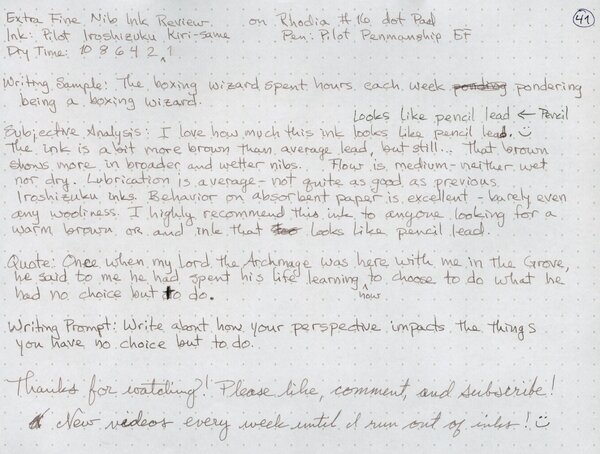 Extra Fine Nib Ink Review on Rhodia #16 dot Pad 41
Ink: Pilot Iroshizuku Kiri-same Pen: Pilot Penmanship EF
Dry Time: 10 8 6 4 2 1
Writing Sample: The boxing wizard spent hours each week pondering
being a boxing wizard.
Looks like pencil lead ← Pencil
Subjective Analysis: I love how much this ink looks like pencil lead. :)
The ink is a bit more brown than average lead, but still... That brown
shows more in broader and wetter nibs. Flow is medium - neither wet
nor dry. Lubrication is average - not quite as good as previous
Iroshizuku inks. Behavior on absorbent paper is excellent - barely even
any wooliness. I highly recommend this ink to anyone looking for a
warm brown or and ink that looks like pencil lead.
Quote: Once when my lord the Archmage was here with me in the Grove,
he said to me he had spent his life learning how to choose to do what he
had no choice but to do.
Writing Prompt: Write about how your perspective impacts the things
you have no choice but to do.
Thanks for watching! Please like, comment, and subscribe!
New videos every week until I run out of inks! :)